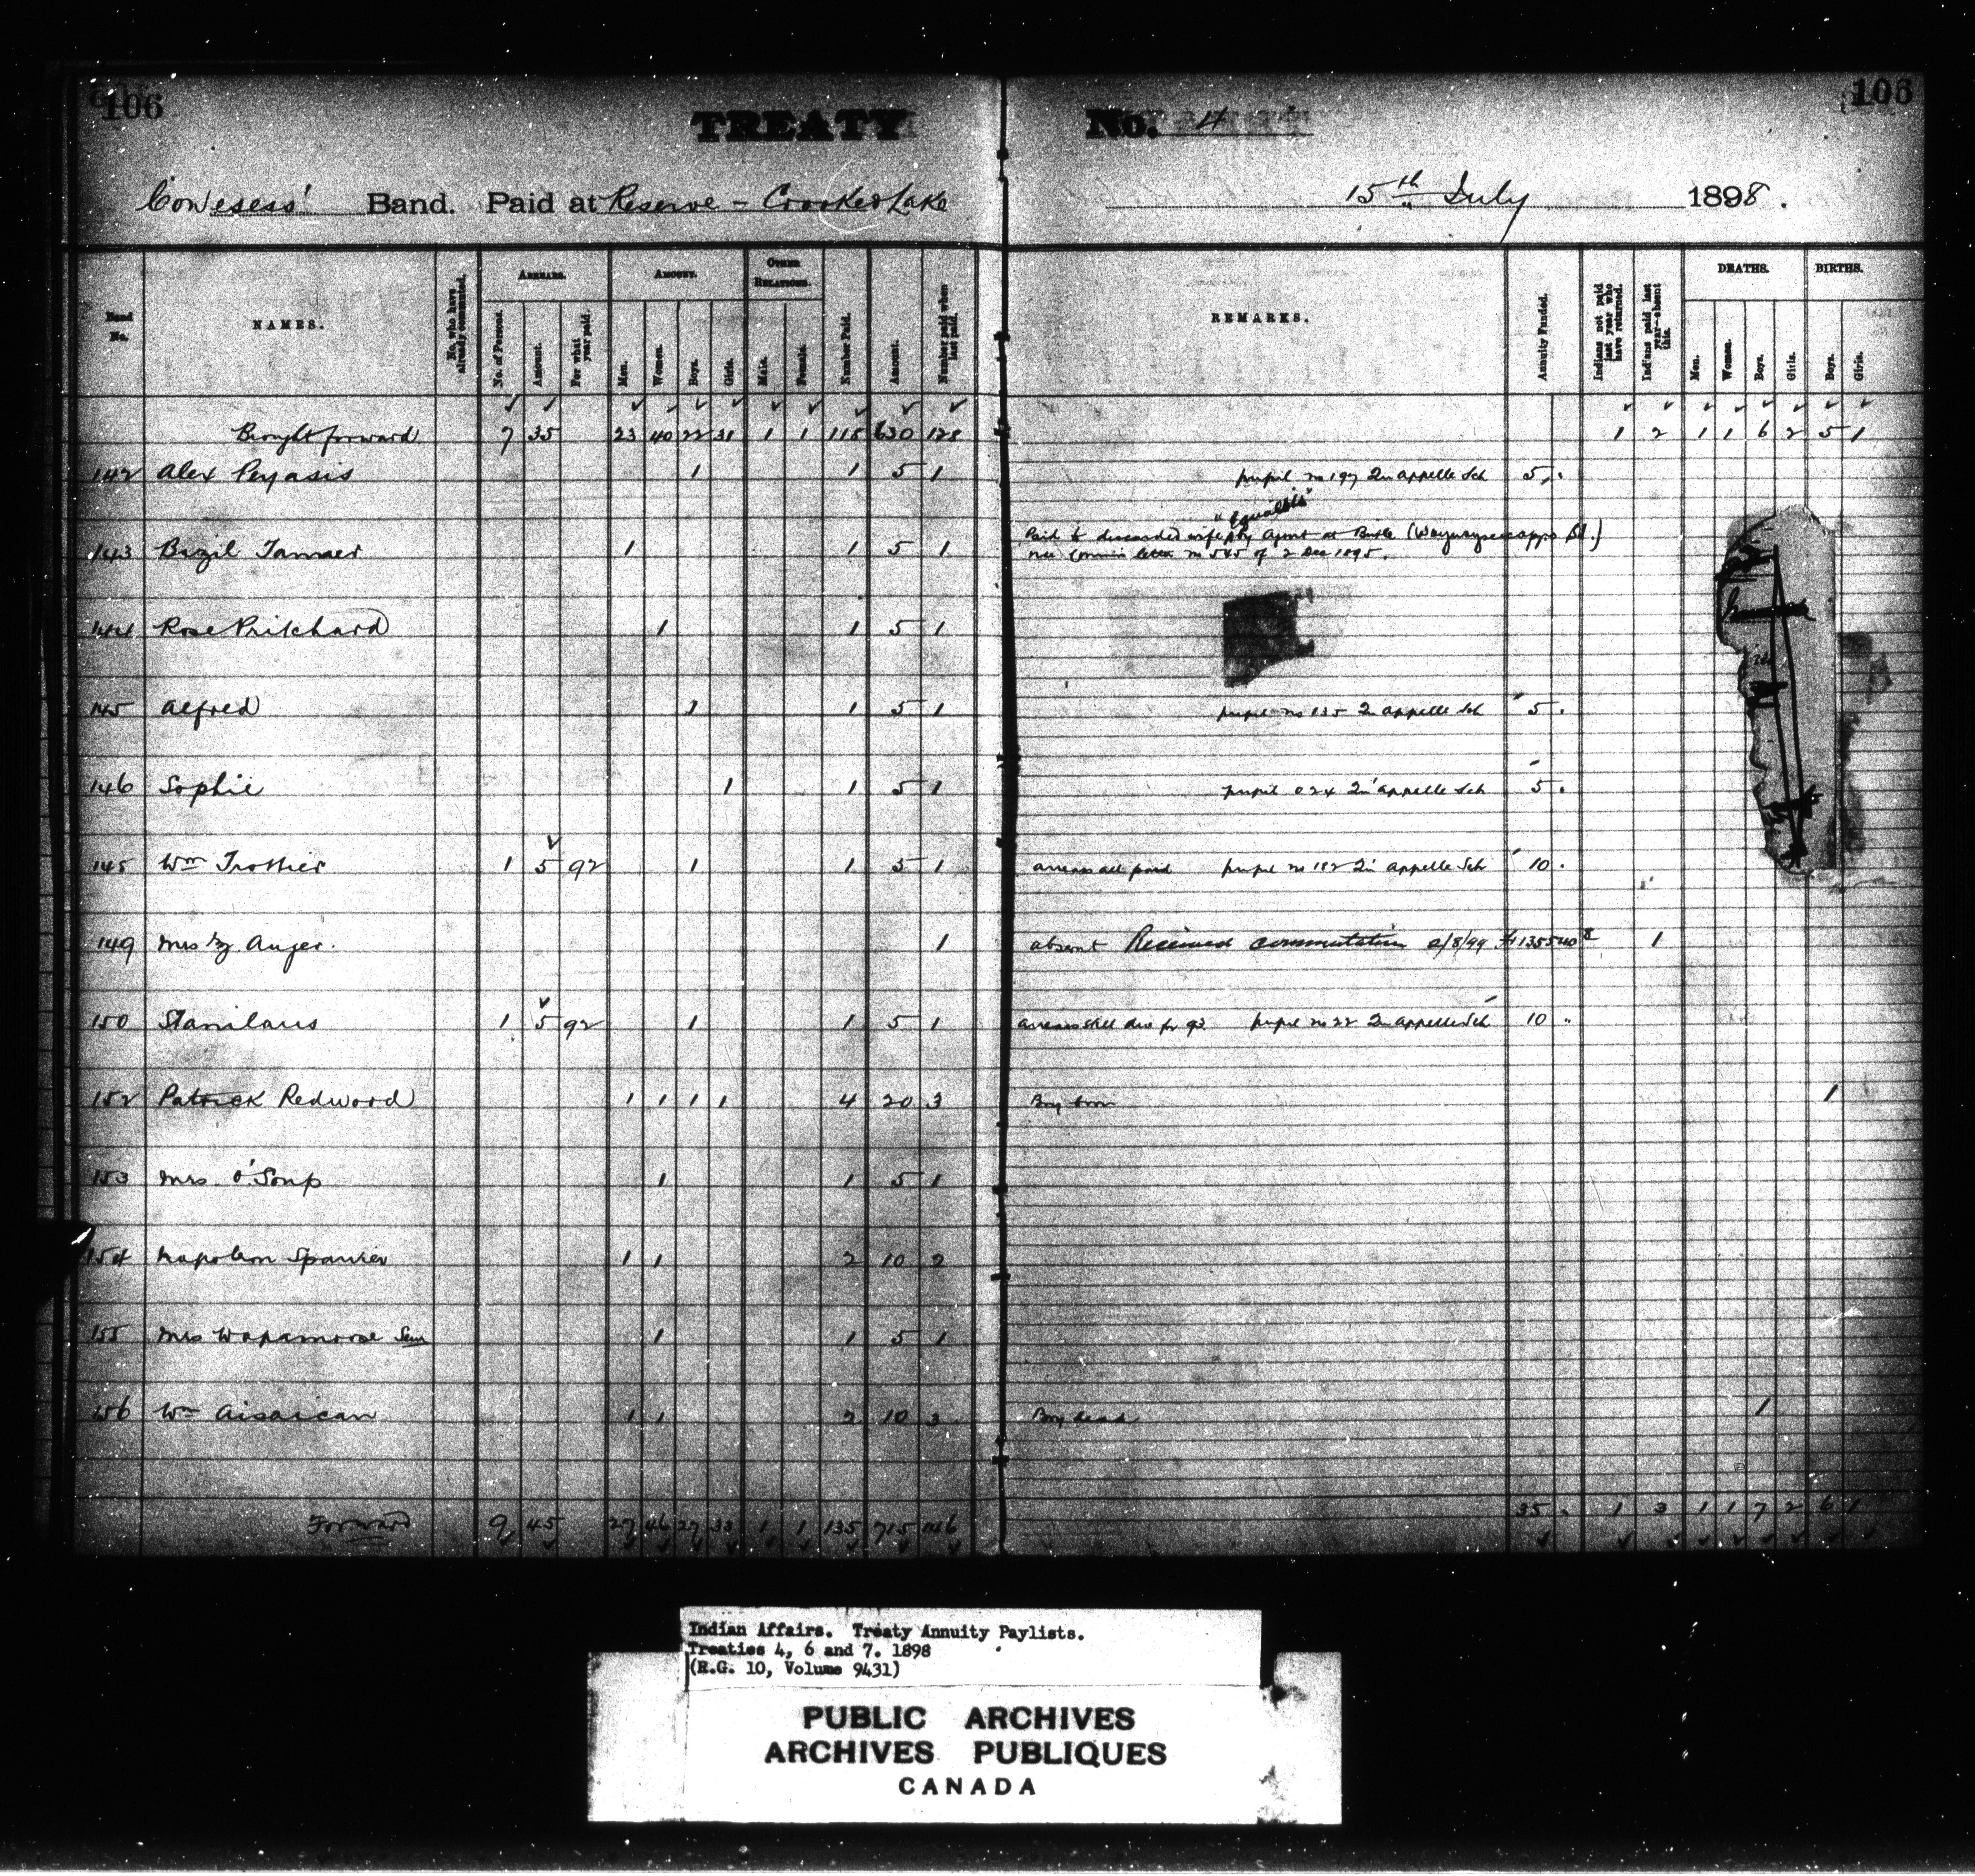 106
106
TREATY No. 4
Cowesess' Band. Paid at Reserve - Crooked Lake 15th July 1898.
Band No.
NAMES.
No. who have already commuted.
ARREARS.
No. of Persons.
Amount.
For what year paid.
AMOUNT.
Men.
Women.
Boys.
Girls.
OTHER RELATIONS.
Male.
Female.
Number Paid.
Amount.
Number paid when last paid.
REMARKS.
Annuity Funded.
Indians not paid last year who have returned.
Indians paid last year—absent this.
DEATHS.
Men.
Women.
Boys.
Girls.
BIRTHS.
Boys.
Girls.
Brought forward 7 35 23 40 22 31 1 1 118 630 128 1 2 1 1 6 2 5 1
142 Alex Peyasis 1 1 5 1 pupil no 197 Qu'appelle Sch 5
"Equalsis"
143 Bazil Tanner 1 1 5 1 Paid to discarded wife by agent at Birtle (Waywayseecappo Bd.)
vide Commis letter no 545 of 2 Dec 1895.
144 Rose Pritchard 1 1 5 1
145 Alfred 1 1 5 1 pupil no 135 Qu appelle Sch 5
146 Sophie 1 1 5 1 pupil 024 Qu'appelle Sch 5
145 Wm Trottier 1 5 92 1 1 5 1 arrears all paid pupil no 182 Qu'appelle Sch 10
149 Mrs Auger. 1 absent Received commutation 2/8/99 1
150 Stanilaus 1 5 92 1 1 5 1 arrears still due for 93 pupil no 22 Qu appelle Sch 10
152 Patrick Redwood 1 1 1 1 4 20 3 Boy born 1
153 Mrs O'Soup 1 1 5 1
154 Napoleon Sparvier 1 1 2 10 2
155 Mrs Wapamoose Senr 1 1 5 1
156 Wm Aisaican 1 1 2 10 3 Boy dead 1
Forward 9 45 27 46 27 33 1 1 135 715 146 35 1 3 1 1 7 2 6 1
Indian Affairs. Treaty Annuity Paylists.
Treaties 4, 6 and 7. 1898
(R.G. 10, Volume 9431)
PUBLIC ARCHIVES
ARCHIVES PUBLIQUES
CANADA